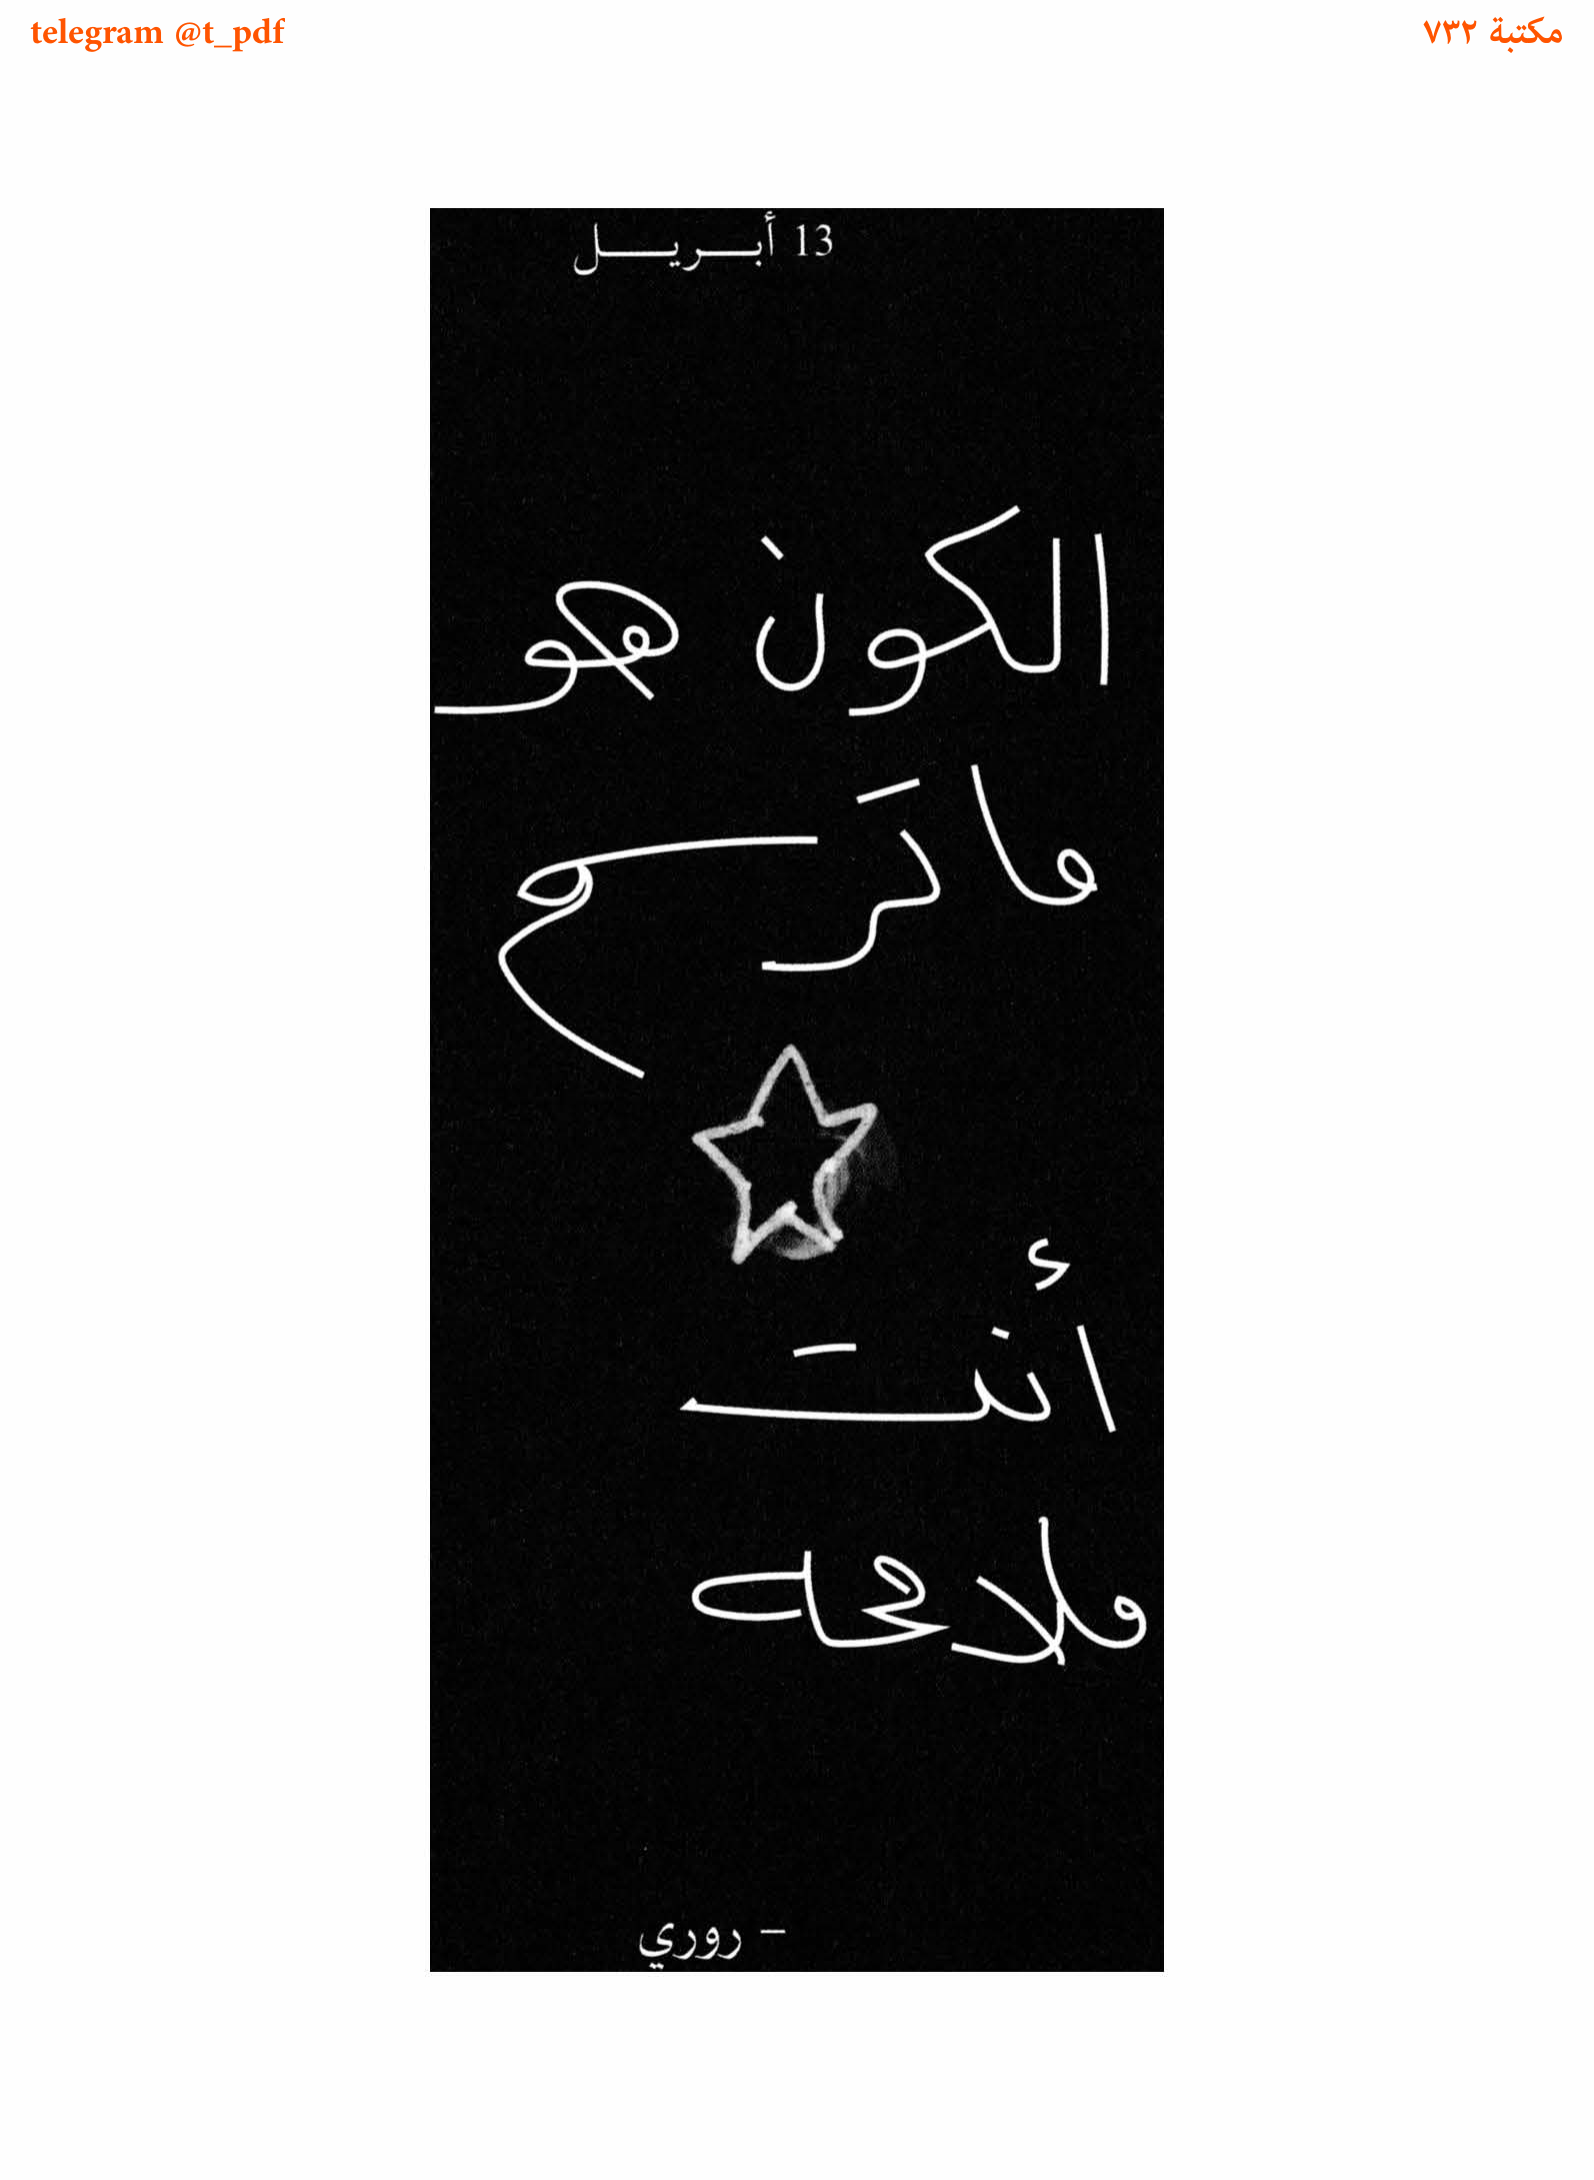 telegram @t_pdf
مكتبة ٧٣٢
13 أبريل
الكون هو
ما ترسم
أنت
ملامحه
– روري